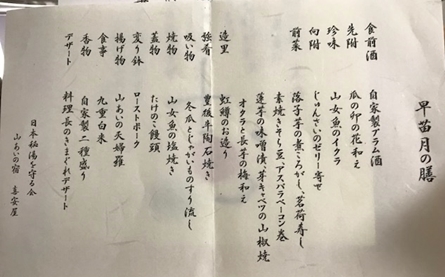 早苗月の膳
食前酒 自家製プラム酒
先附 瓜の卯の花和え
珍味 山女魚のイクラ
向附 じゅんさいのゼリー寄せ
前菜 落子芋の煮ころがし、茗荷寿し
素焼きそら豆、アスパラベーコン巻
蓮芋の味噌漬、芽キャベツの山椒焼
オクラと長芋の梅和え
造里 虹鱒のお造り
強肴 豊後牛陶石焼き
吸い物 冬瓜とじゃがいものすり流し
焼物 山女魚の塩焼き
蓋物 たけのこ饅頭
変り鉢 ローストポーク
揚げ物 山あいの天婦羅
食事 九重白米
香物 自家製二種盛り
デザート 料理長のきまぐれデザート
日本秘湯を守る会
山あいの宿 喜安屋